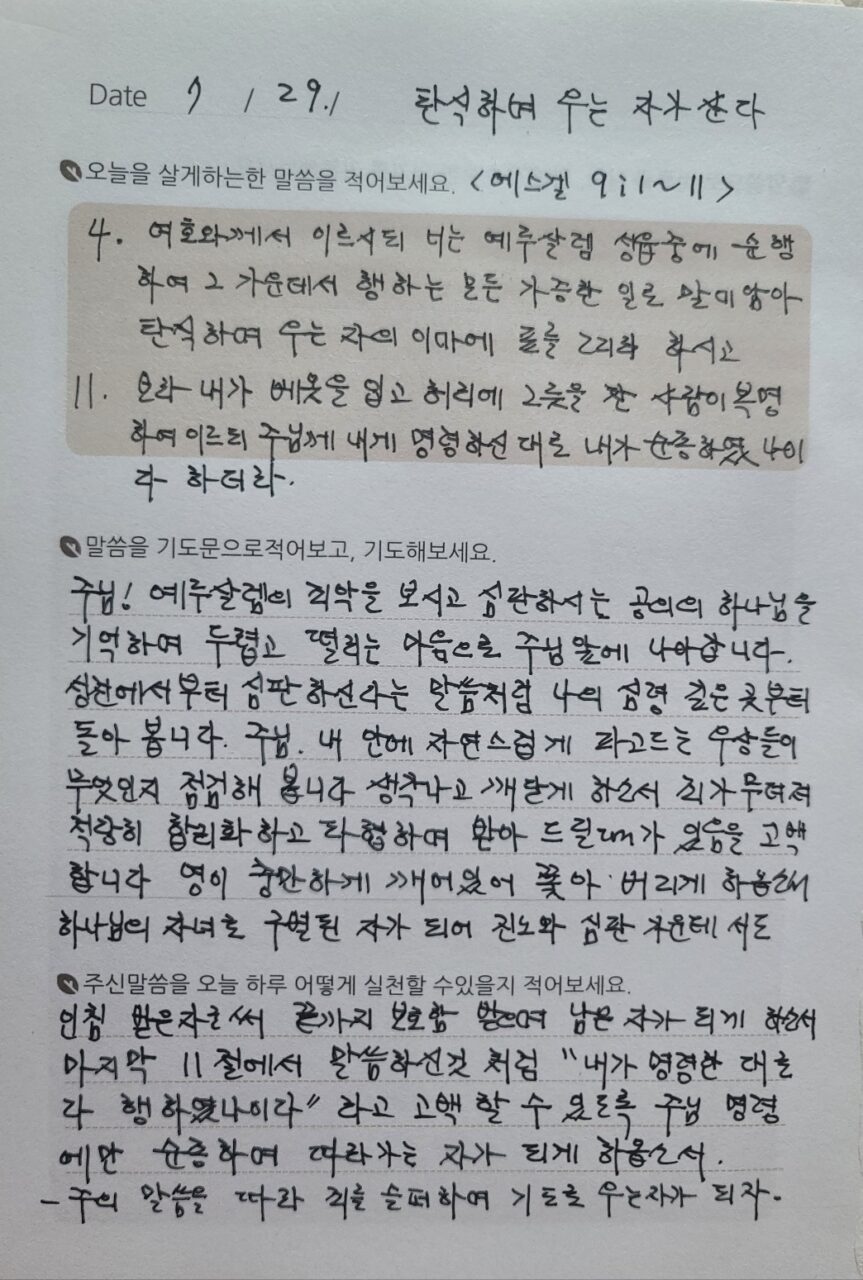 Date 7 / 29. / 탄식하며 우는 자가 산다
오늘을 살게하는한 말씀을 적어보세요. <에스겔 9:1~11>
4. 여호와께서 이르시되 너는 예루살렘 성읍중에 순행
하여 그 가운데서 행하는 모든 가증한 일로 말미암아
탄식하며 우는 자의 이마에 표를 그리라 하시고
11. 보라 내가 베옷을 입고 허리에 그릇을 찬 사람이 복명
하여 이르되 주님께 내게 명령하신 대로 내가 순종하였나이
다 하더라.
말씀을 기도문으로적어보고, 기도해보세요.
주님! 예루살렘의 죄악을 보시고 심판하시는 공의의 하나님을
기억하며 두렵고 떨리는 마음으로 주님 앞에 나아갑니다.
성전에서부터 심판하신다는 말씀처럼 나의 심령 깊은 곳부터
돌아 봅니다. 주님. 내 안에 자연스럽게 파고드는 우상들이
무엇인지 점검해 봅니다 생각나고 깨닫게 하소서 죄가 무뎌져
적당히 합리화 하고 타협하며 받아 드릴때가 있음을 고백
합니다 영이 충만하게 깨어있어 쫓아 버리게 하옵소서
하나님의 자녀로 구별된 자가 되어 진노와 심판 가운데 서도
주신말씀을 오늘 하루 어떻게 실천할 수있을지 적어보세요.
인침 받은자로써 끝까지 보호함 받으며 남은 자가 되게 하소서
마지막 11절에서 말씀하신것 처럼 "내가 명령한 대로
다 행하였나이다" 라고 고백 할 수 있도록 주님 명령
에만 순종하며 따라가는 자가 되게 하옵소서.
- 주의 말씀을 따라 죄를 슬퍼하며 기도로 우는자가 되자.